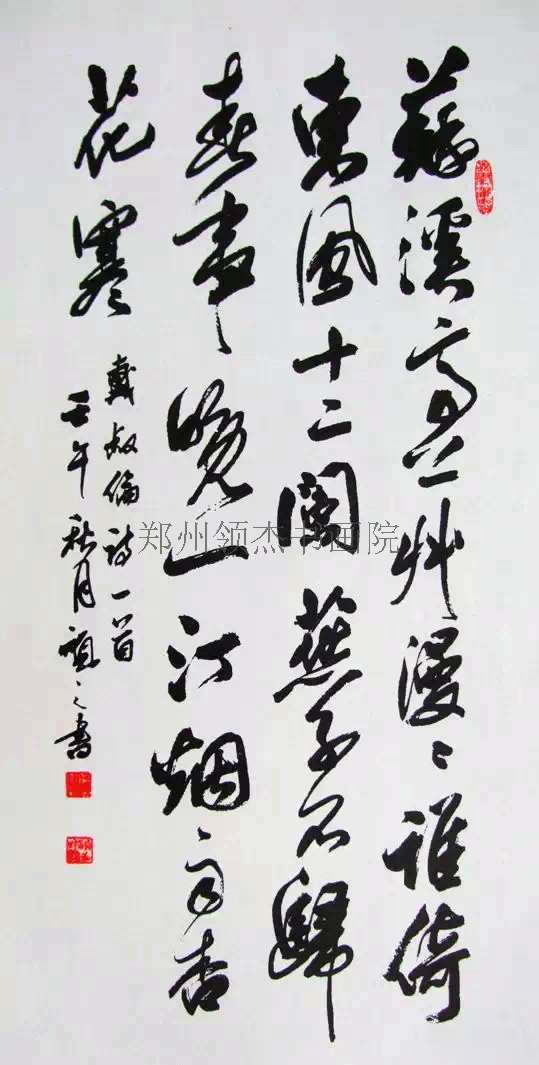 蘇溪亭上艸漫々誰倚
東風十二闌燕子不歸
春事晚一汀烟雨杏
花寒
戴叔倫詩一首
壬午秋月慎之書
郑州领杰书画院